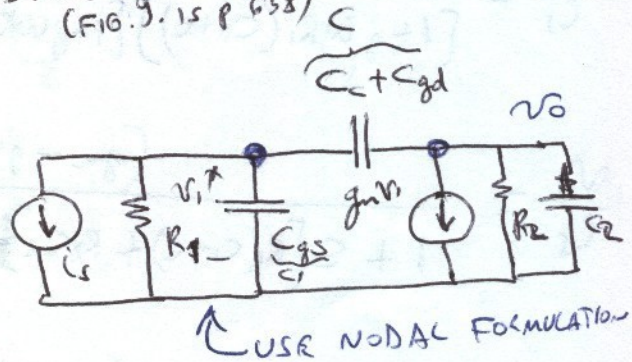 (FIG. 9.15 P 638)
C
Cc + Cgd
vo
v1 +
gmv1
is
R1 -
Cgs
C1
R2
C2
USE NODAL FORMULATION